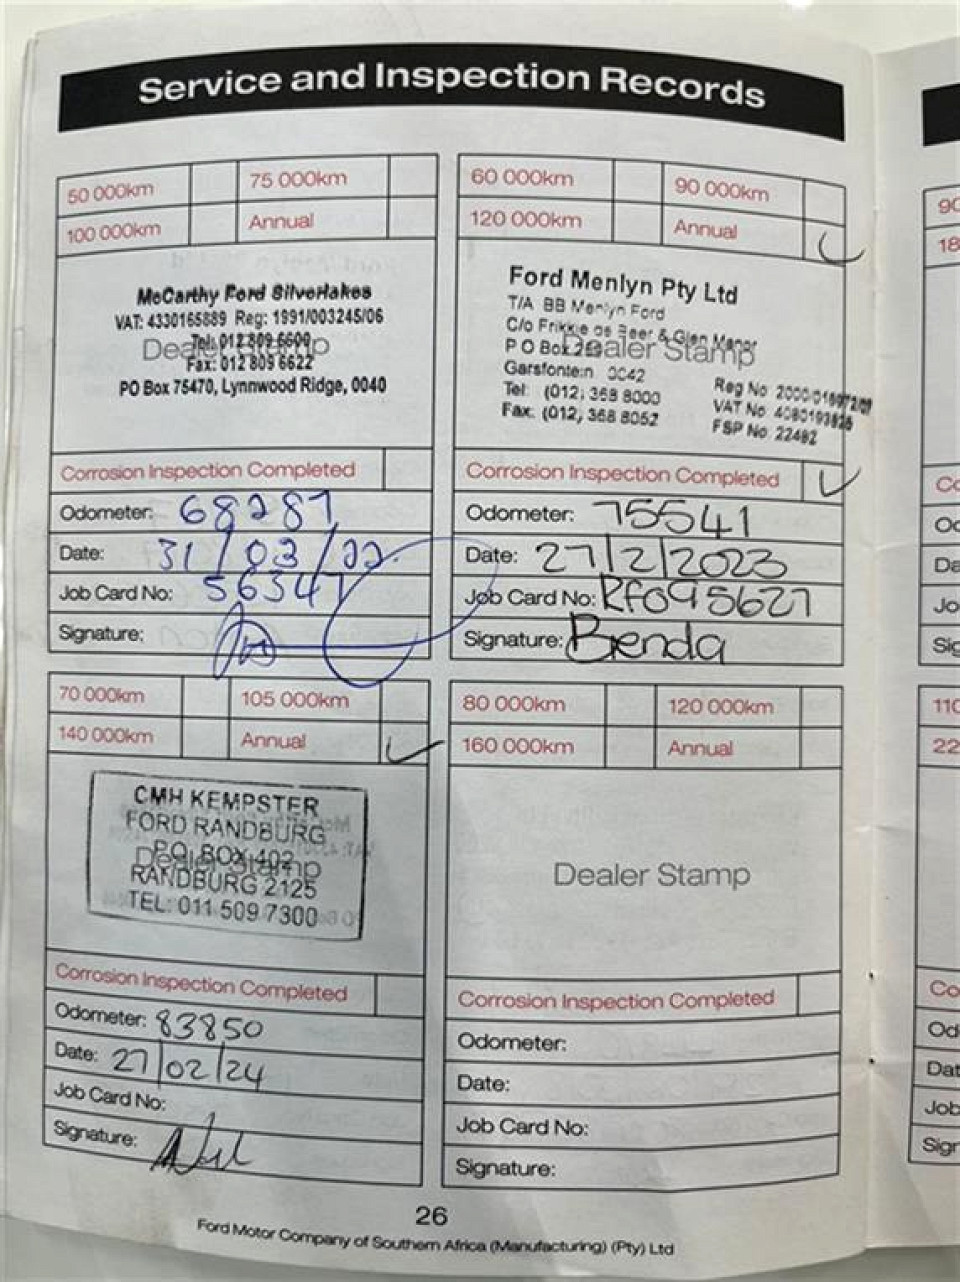 Service and Inspection Records
50 000km 75 000km
100 000km Annual
McCarthy Ford Silverlakes
VAT: 4330165889 Reg: 1991/003245/06
Tel: 012 809 6600
Dealer Stamp
Fax: 012 809 6622
PO Box 75470, Lynnwood Ridge, 0040
Corrosion Inspection Completed
Odometer: 68287
Date: 31/03/22
Job Card No: 56347
Signature:
60 000km 90 000km
120 000km Annual
Ford Menlyn Pty Ltd
T/A BB Menlyn Ford
C/o Frikkie de Beer & Glen Manor
P O Box
Dealer Stamp
Garsfontein 0042
Tel: (012) 368 8000
Fax: (012) 368 8052
Reg No 2000/016972/07
VAT No 4080193826
FSP No 22482
Corrosion Inspection Completed
Odometer: 75541
Date: 27/2/2023
Job Card No: Rf095627
Signature: Brenda
70 000km 105 000km
140 000km Annual
CMH KEMPSTER
FORD RANDBURG
P.O. BOX 402
Dealer Stamp
RANDBURG 2125
TEL: 011 509 7300
Corrosion Inspection Completed
Odometer: 83850
Date: 27/02/24
Job Card No:
Signature:
80 000km 120 000km
160 000km Annual
Dealer Stamp
Corrosion Inspection Completed
Odometer:
Date:
Job Card No:
Signature:
26
Ford Motor Company of Southern Africa (Manufacturing) (Pty) Ltd